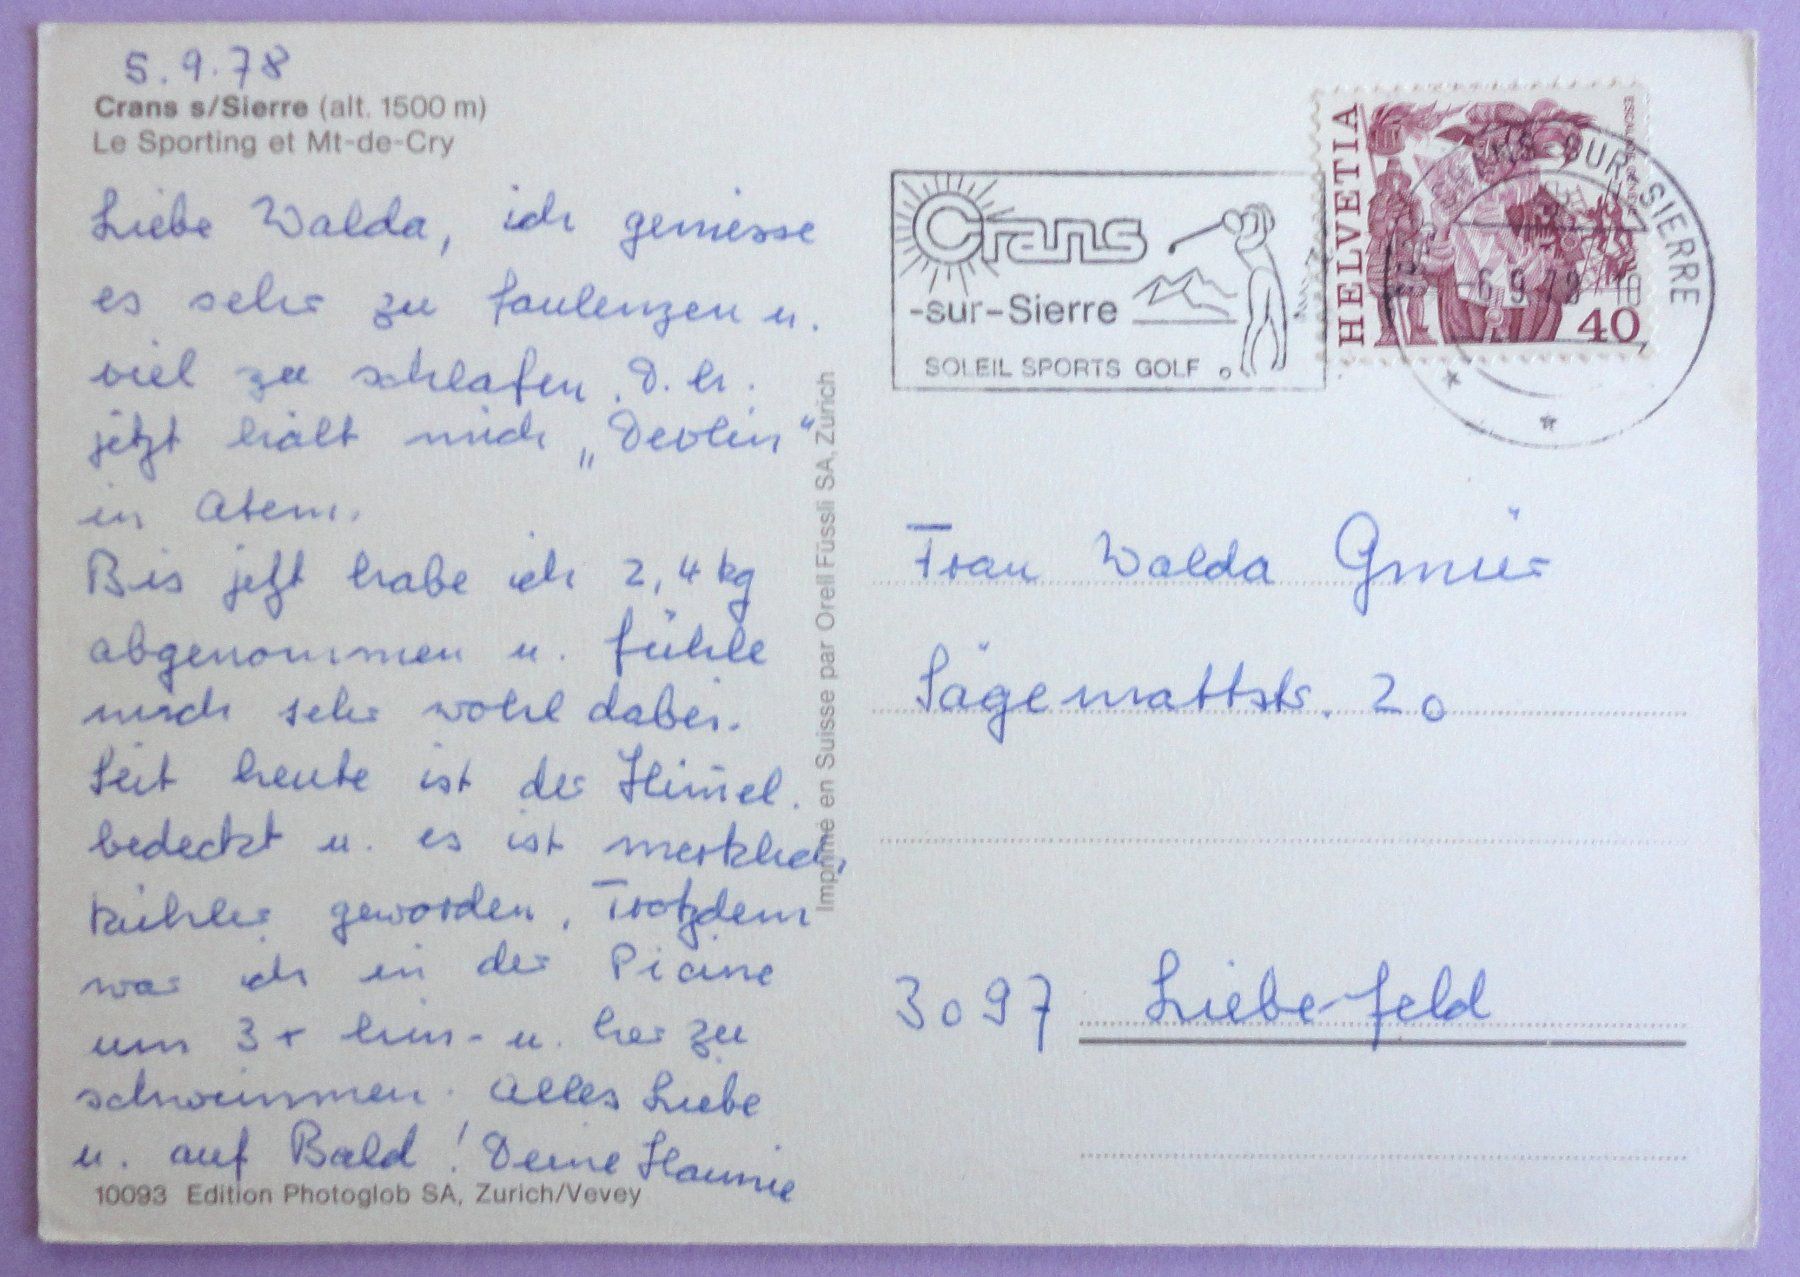 5.9.78
Crans s/Sierre (alt. 1500 m)
Le Sporting et Mt-de-Cry
Liebe Walda, ich geniesse
es sehr zu faulenzen u.
viel zu schlafen. D.h.
jetzt hält mich „Devlin“
in Atem.
Bis jetzt habe ich 2,4 kg
abgenommen u. fühle
mich sehr wohl dabei.
Seit heute ist der Him̄el
bedeckt u. es ist merklich
kühler geworden. Trotzdem
war ich in der Picine
um 3x hin- u. her zu
schwimmen. Alles Liebe
u. auf Bald! Deine Hannie
10093 Edition Photoglob SA, Zurich/Vevey
Imprimé en Suisse par Orell Füssli SA, Zurich
Crans
-sur-Sierre
SOLEIL SPORTS GOLF
HELVETIA
40
CRANS-SUR-SIERRE
6.9.78-18
Frau Walda Gmür
Sägemattstr. 20
3097 Liebefeld